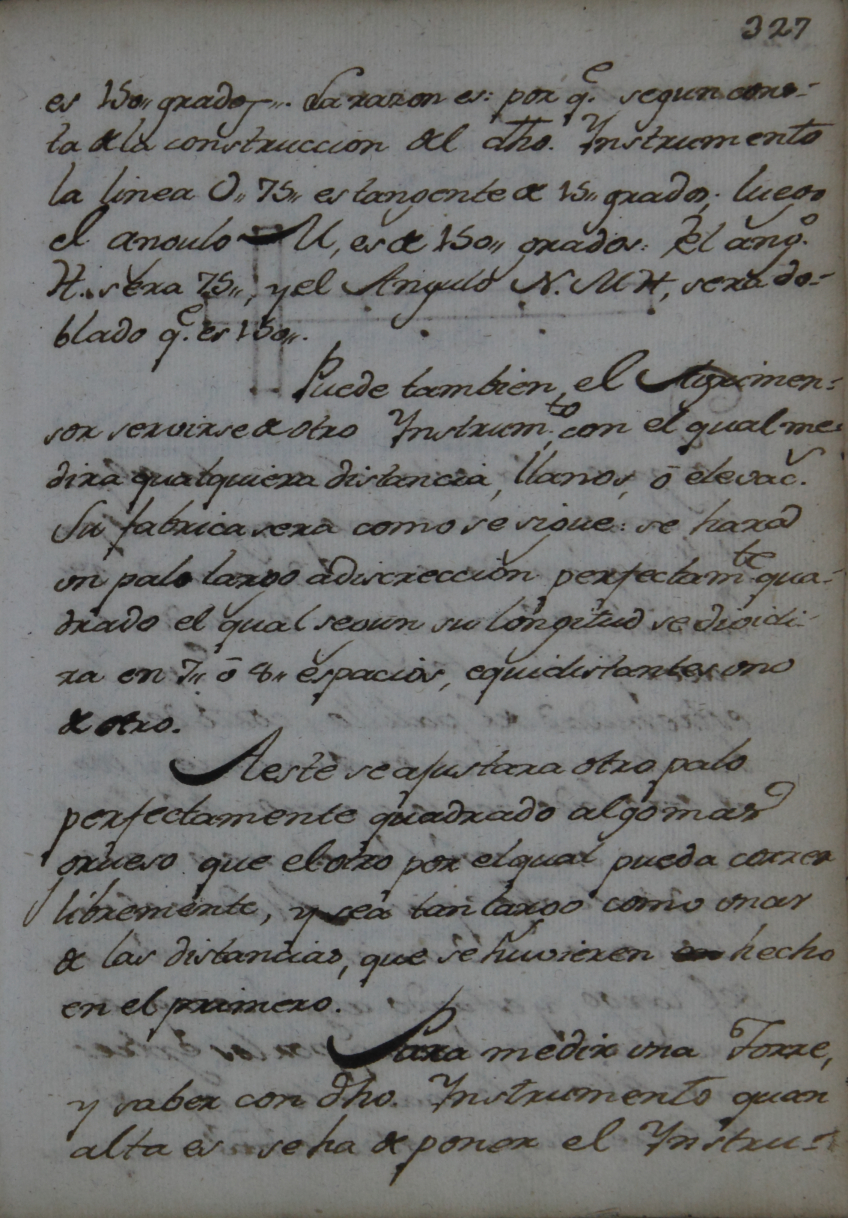 327
es 150,, grados,,. La razon es: por q.e segun cons-
ta de la construccion del dho. Ynstrumento
la linea O,, 75,, es tangente de 15,, grados. luego
el angulo M, es de 150,, grados: El ang.o
H. sera 75,,, y el Angulo N. M H, sera do-
blado q.e es 150,,.
Puede tambien, el Agrimen-
sor servirse de otro Ynstrum.to con el qual me-
dira qualquiera distancia, llanos, ô elevac.
Su fabrica sera como se sigue: se hara
un palo largo a discrección perfectam.te qua-
drado el qual segun su longitud se dividi-
ra en 7,, ô 8,, espacios, equidistantes uno
de otro.
A este se ajustara otro palo
perfectamente quadrado algo mas
grueso que el otro por el qual pueda correr
libremente, y sea tan largo como unas
de las distancias, que se huvieren hecho
en el primero.
Para medir una Torre,
y saber con dho. Ynstrumento quan
alta es se ha de poner el Ynstru-